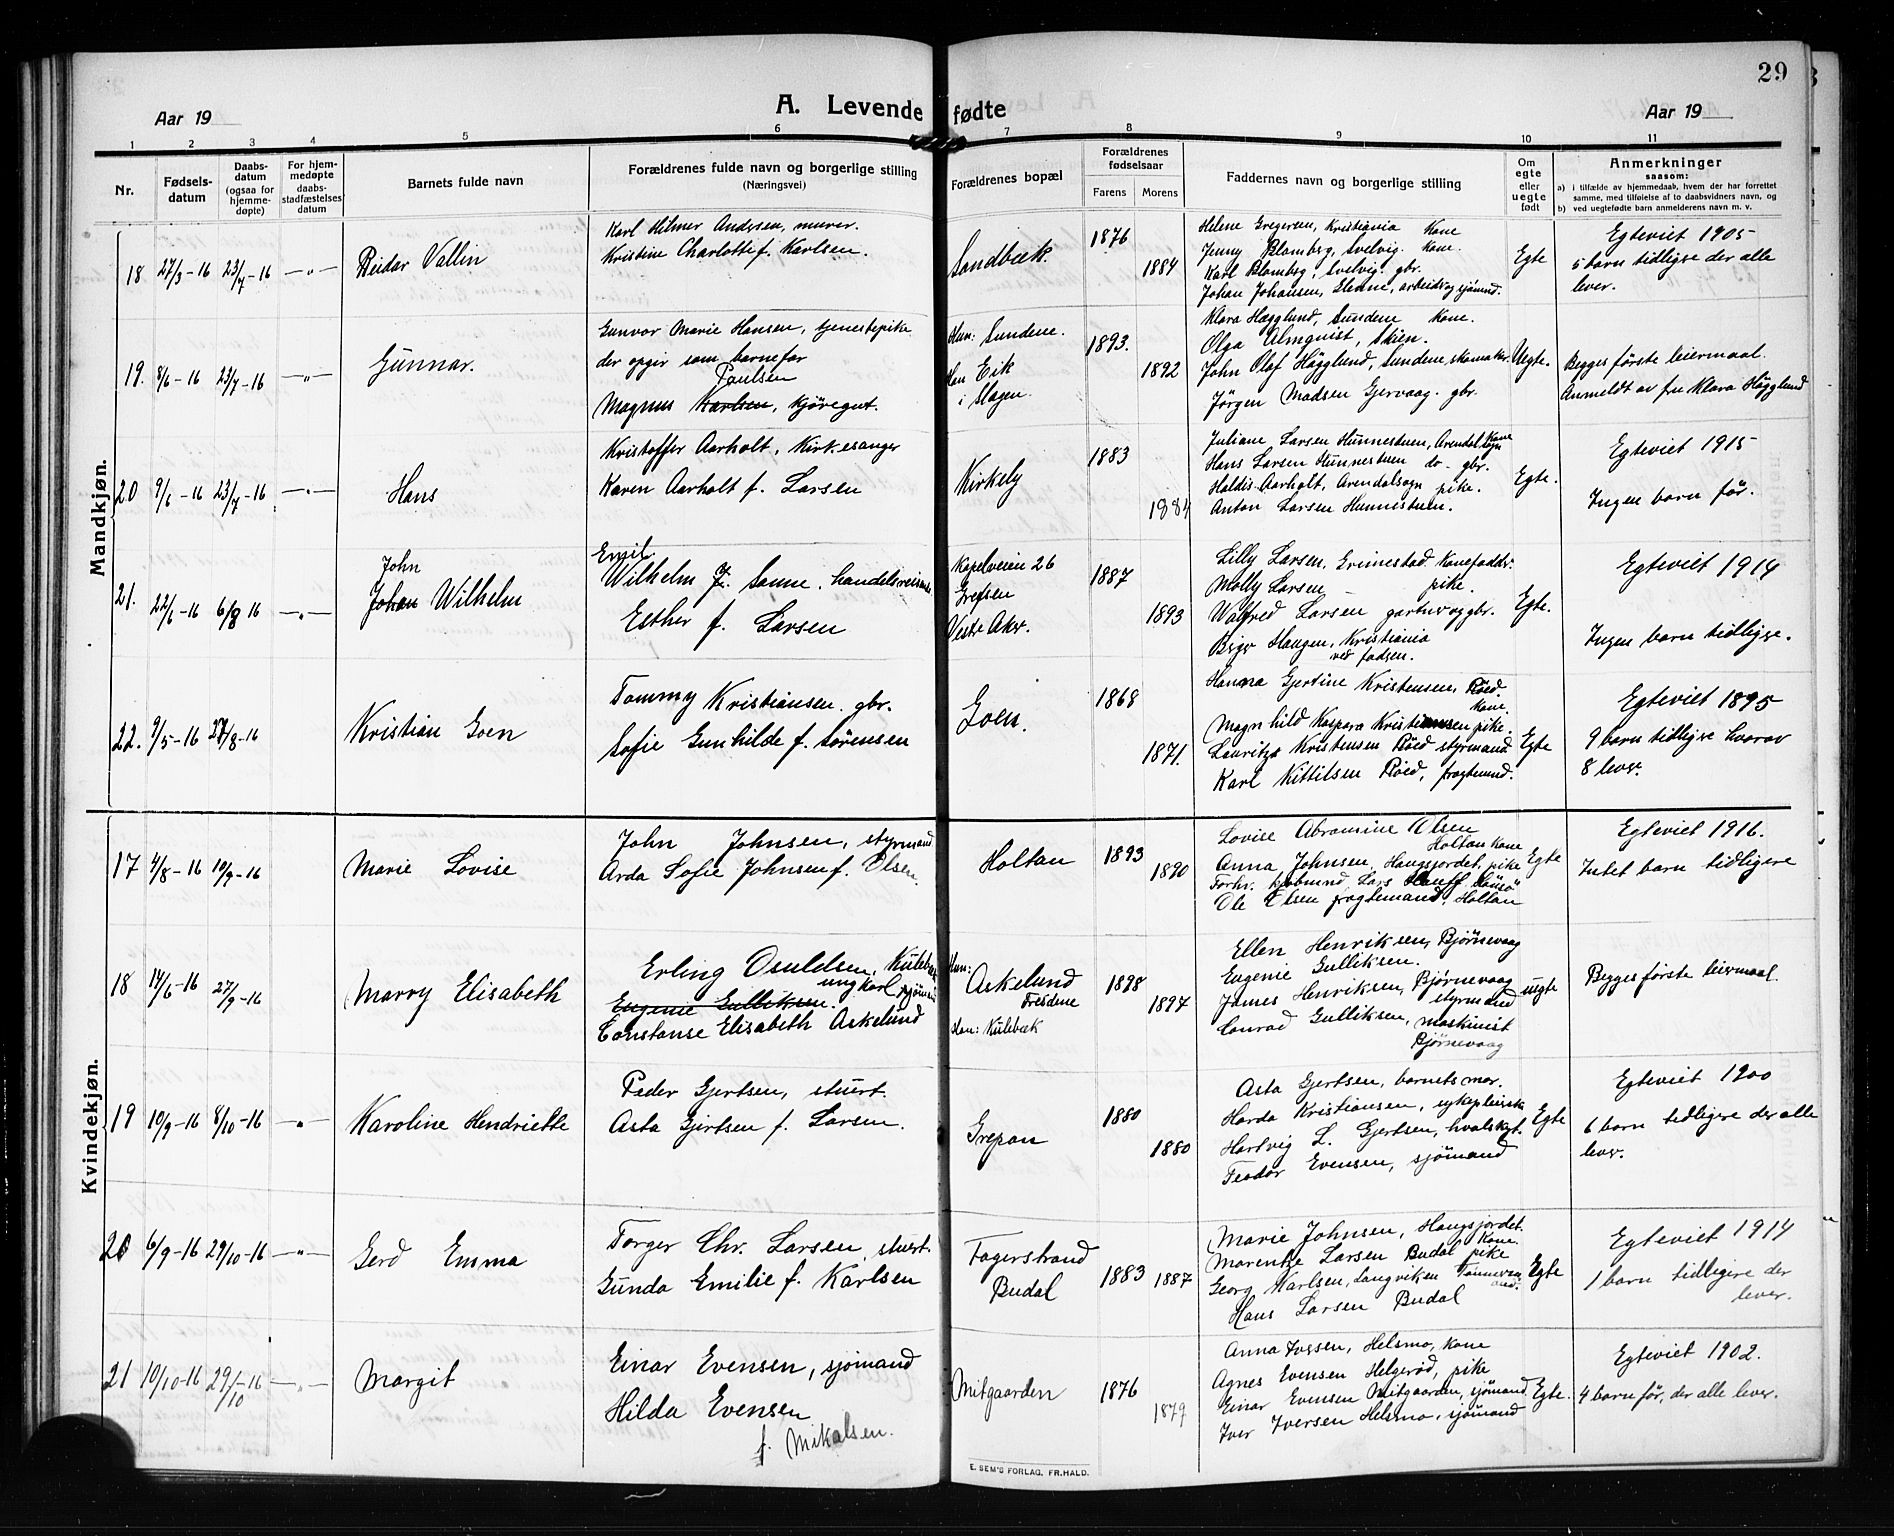 29
Aar 19
A. Levende fødte
Aar 19
1 2 3 4 5 6 7 8 9 10 11
Nr.
Fødsels-
datum
Daabs-
datum
(ogsaa for
hjemme-
døpte)
For hjem-
medøpte
daabs-
stadfæstelses
datum
Barnets fulde navn
Forældrenes fulde navn og borgerlige stilling
(Næringsvei)
Forældrenes bopæl
Forældrenes
fødselsaar
Farens
Morens
Faddernes navn og borgerlige stilling
Om
egte
eller
uegte
født
Anmerkninger
saasom:
a) i tilfælde av hjemmedaab, hvem der har forrettet
samme, med tilføielse af to daabsvidners navn, og
b) ved uegtefødte barn anmelderens navn m. v.
Mandkjøn.
18
27/3-16
23/7-16
—"—
Reidar Vallin
Karl Hilmer Andersen, murer.
Kristine Charlotte f. Karlsen.
Sandbæk.
1876
1884
Helene Gregersen, Kristiania Kone
Jenny Blombsg, Svelvig. Kone.
Karl Blombsg, Svelvig. gbr.
Johan Johansen, arbeids og sjömnd.
Egte
Egteviet 1905
5 barn tidligse der alle
lever.
19.
8/6-16
23/7-16
—"—
Gunnar.
Gunvor Marie Hansen, tjenestepike
der opgir som barnefar
Paulsen
Magnus Karlsen, kjøregut.
Hun: Sundene.
Han Eik
i Slagen.
1893.
1892
Klara Hägglund, Sundene Kone.
Olga Almquist, Skien.
John Olaf Hägglund, Sundene, skomaker.
Jörgen Madsen Gjervaag. gbr.
Uegte.
Begges förste leiermaal.
Anmeldt av fru Klara Hägglund
20
9/6-16
23/7-16
—"—
Hans
Kristoffer Aarholt, Kirkesanger
Karen Aarholt f. Larsen
Kirkely
1883
1884
Juliane Larsen Hunnestuen, Arendal Kone
Hans Larsen Hunnestuen do- gbr.
Haldis Aarholt, Arendalsogn pike.
Anton Larsen Hunnestuen.
Egte.
Egteviet 1915
Ingen barn før.
21.
22/6-16
6/8 16
—"—
John
Johan Wilhelm
Emil
Wilhelm J. Sanne. handelsreisende
Esther f. Larsen
Kapelveien 26
Grefsen
Vestr Aker.
1887
1893
Lilly Larsen, Konefadder.
Molly Larsen — pike.
Walfred Larsen gartner og gbr.
Birger Haugen, Kristiania
ved fadsen.
Egte.
Egteviet 1914
Ingen barn tidligse.
22.
9/5-16
27/8-16
Kristian Goen
Tommy Kristiansen. gbr.
Sofie Gunhilde f. Sørensen
Goen.
1868
1871.
Hanna Gjertine Kristensen, Röed.
Kone.
Magnhild Kaspara Kristiansen pike.
Lauritz Kristensen Röed styrmand
Karl Kittilsen Röed, fragtemnd.
Egte
Egteviet 1895
9 barn tidligse hvorav
8 lever.
Kvindekjøn.
17
4/8-16
10/9-16
Marie Lovise
John Johnsen, styrmand
Arda Sofie Johnsen f. Olsen.
Holtan
1893
1890
Lovise Abramine Olsen
Holtan Kone
Anna Johnsen, Haugsjordet, pike
Forhv. kjöbmnd, Lars Hauff
Ole Olsen fragtemand, Holtan
Egte
Egteviet 1916.
Intet barn tidligere
18
14/6-16
27/9-16
Marry Elisabeth
Erling Osuldsen, Kulebæk
ungkarl sjömnd
Eugenie Gulliksen.
Constanse Elisabeth Askelund
Hun:
Askelund
Tresdene
Han: Kulebæk
1898
1897
Ellen Henriksen, Bjørnevaag
Eugenie Gulliksen.
James Henriksen, Bjørnevaag
styrmand
Conrad Gulliksen, maskinist
Bjørnevaag
uegte
Begges förste leiermaal
19
10/9-16
8/10-16
"
Karoline Hendriette
Peder Gjertsen, stuert.
Asta Gjertsen f. Larsen.
Grepan
1880
1880
Asta Gjertsen, barnets mor.
Harda Kristiansen, sykepleierske
Hartvig L. Gjertsen, hvalskyt.
Teodor Evensen, sjömand
Egte
Egteviet 1900
6 barn tidligere der alle
lever.
20
6/9-16
29/10-16
—"—
Gerd Emma
Torger Chr. Larsen, stuert.
Gunda Emilie f. Karlsen
Fagerstrand
Budal
1883
1887
Marie Johnsen, Haugsjordet.
Kone.
Marentze Larsen Budal pike
Georg Karlsen, Langviken
Hans Larsen Budal
Egte
Egteviet 1914
1 barn tidligere der
lever.
21
10/10-16
29/10-16
—"—
Margit
Einar Evensen, sjømand
Hilda Evensen
f. Mikalsen.
Mitgaarden
1876
1879
Anna Iversen, Helsmo, kone
Agnes Evensen Helgerød, pike
Einar Evensen Mitgaarden, sjømand
Iver Iversen Helsmo, sjømand
Egte.
Egteviet 1902.
4 barn før, der alle lever.
E. SEM'S FORLAG, FR.HALD.